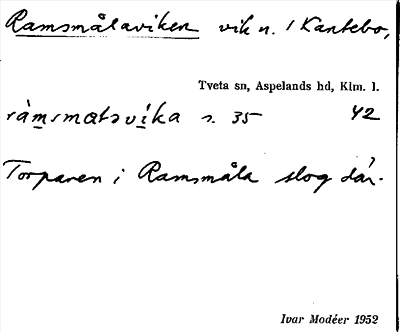 Ramsmålaviken vik n. i Kantebo,
Tveta sn, Aspelands hd, Klm. l.
ràmsmαtsvíka s. 35 42
Torparen i Ramsmåla slog där.
Ivar Modéer 1952